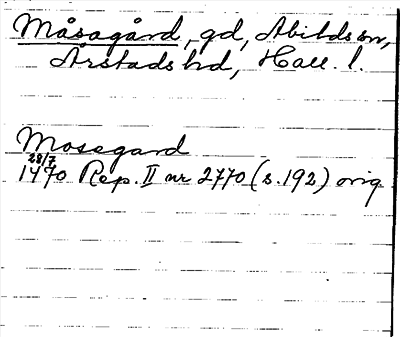 Måsagård, gd, Abildssn,
Årstads hd, Hall. l.
Mosegard
28/7
1470 Rep. II nr 2770 (s. 192) orig